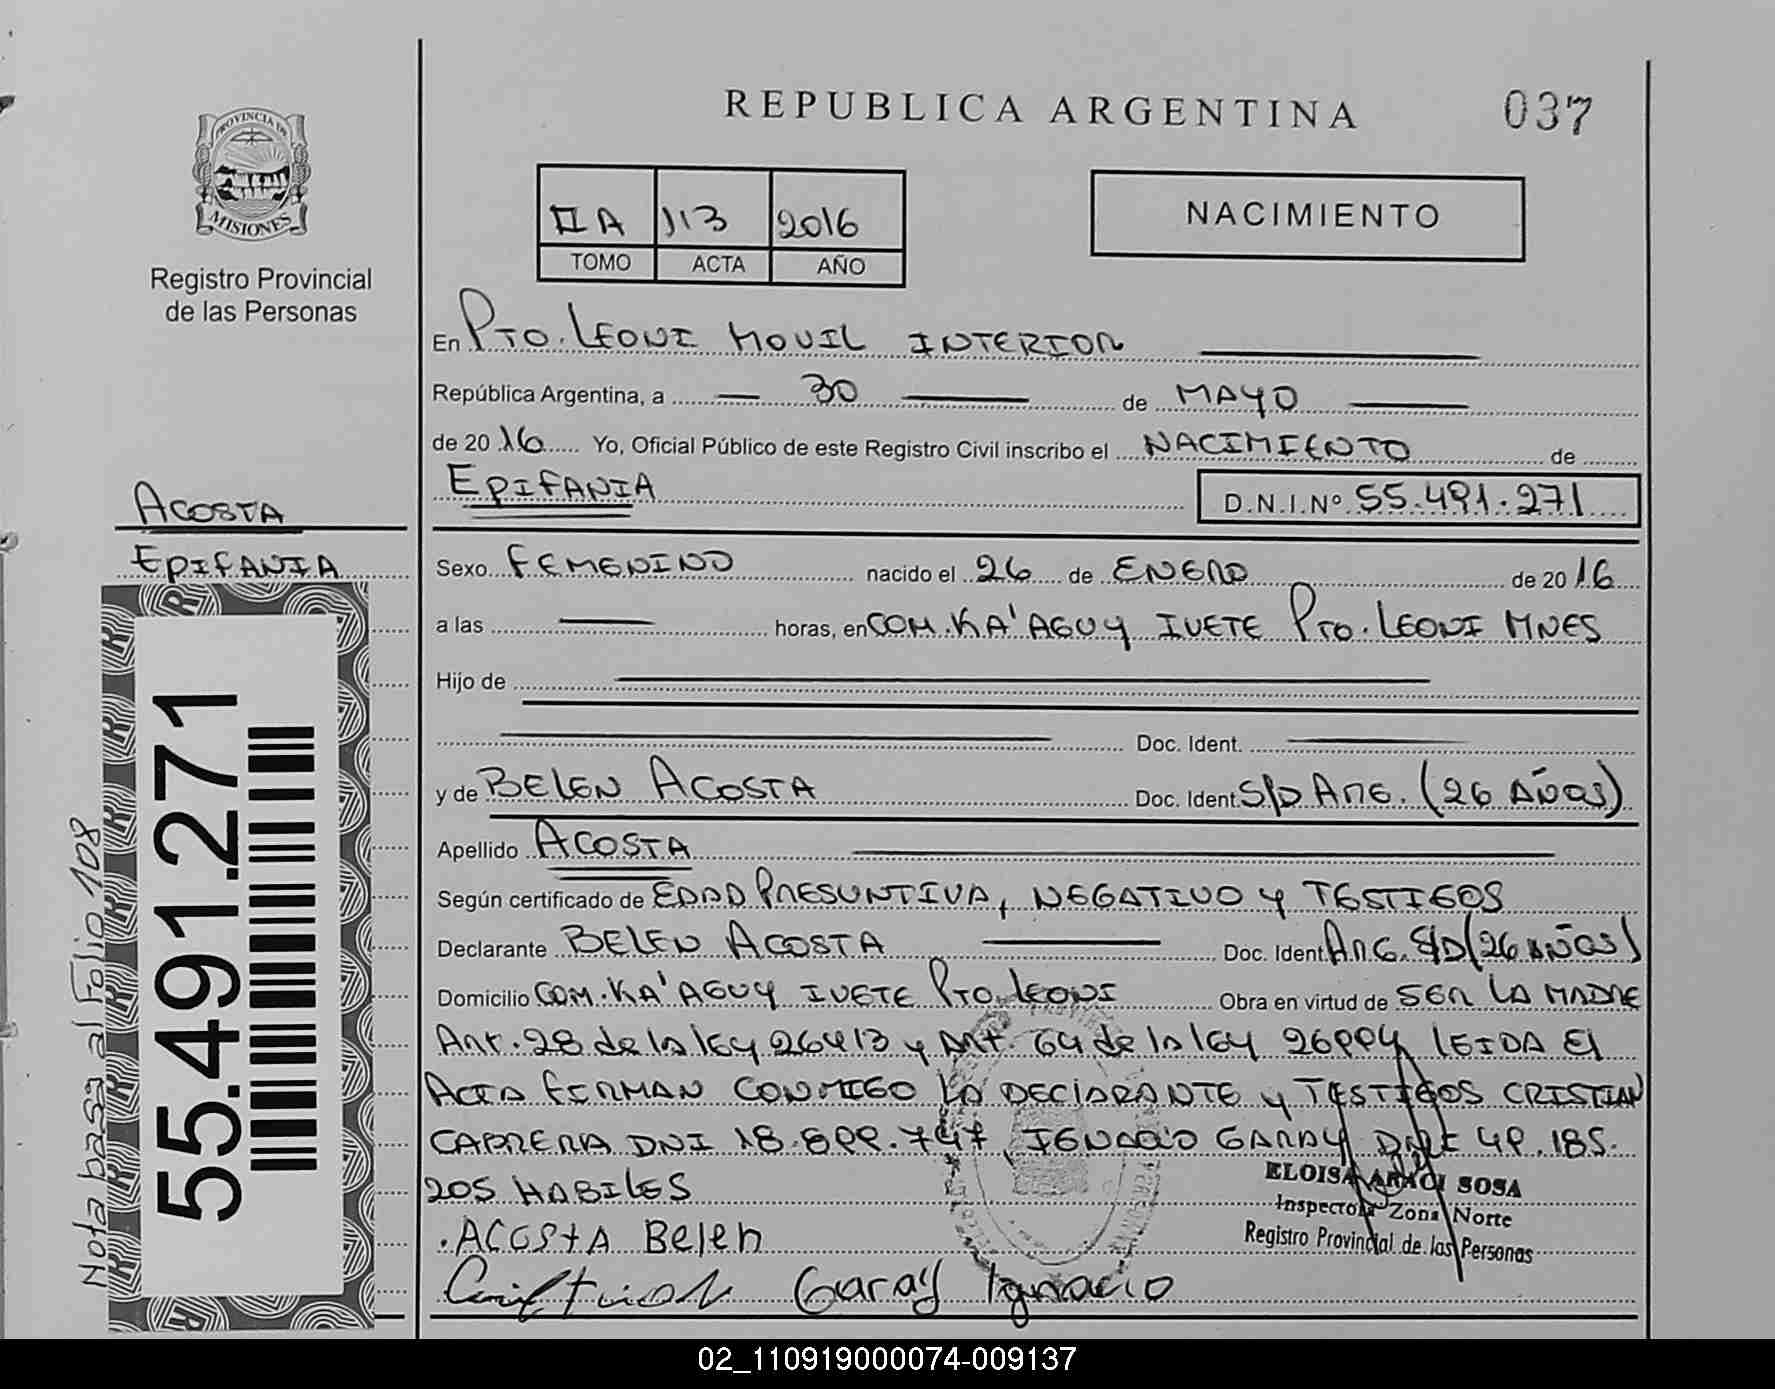 REPUBLICA ARGENTINA
037
PROVINCIA DE
MISIONES
Registro Provincial
de las Personas
II A 113 2016
TOMO ACTA AÑO
NACIMIENTO
En PTO. LEONI MOVIL INTERIOR
República Argentina, a 30 de MAYO
de 2016 Yo, Oficial Público de este Registro Civil inscribo el NACIMIENTO de
EPIFANIA D.N.I.Nº 55.491.271
ACOSTA
EPIFANIA
Sexo FEMENINO nacido el 26 de ENERO de 2016
a las horas, en COM. KA'AGUY IVETE PTO. LEONI MNES
Hijo de
Doc. Ident.
y de BELEN ACOSTA Doc. Ident. S/D ARG. (26 AÑOS)
Apellido ACOSTA
Según certificado de EDAD PRESUNTIVA, NEGATIVO Y TESTIGOS
Declarante BELEN ACOSTA Doc. Ident. ARG. S/D (26 AÑOS)
Domicilio COM. KA'AGUY IVETE PTO. LEONI Obra en virtud de SER LA MADRE
ART. 28 de la ley 26413 y ART. 64 de la ley 26994 LEIDA El
ACTA FIRMAN CONMIGO LA DECLARANTE Y TESTIGOS CRISTIAN
CABRERA DNI 18.899.747, IGNACIO GARAY DNI 49.185.
205 HABILES
ELOISA ARACI SOSA
Inspectora Zona Norte
Registro Provincial de las Personas
.ACOSTA Belen
Cristian Garay Ignacio
55.491.271
Nota basa al Folio 108
02_110919000074-009137